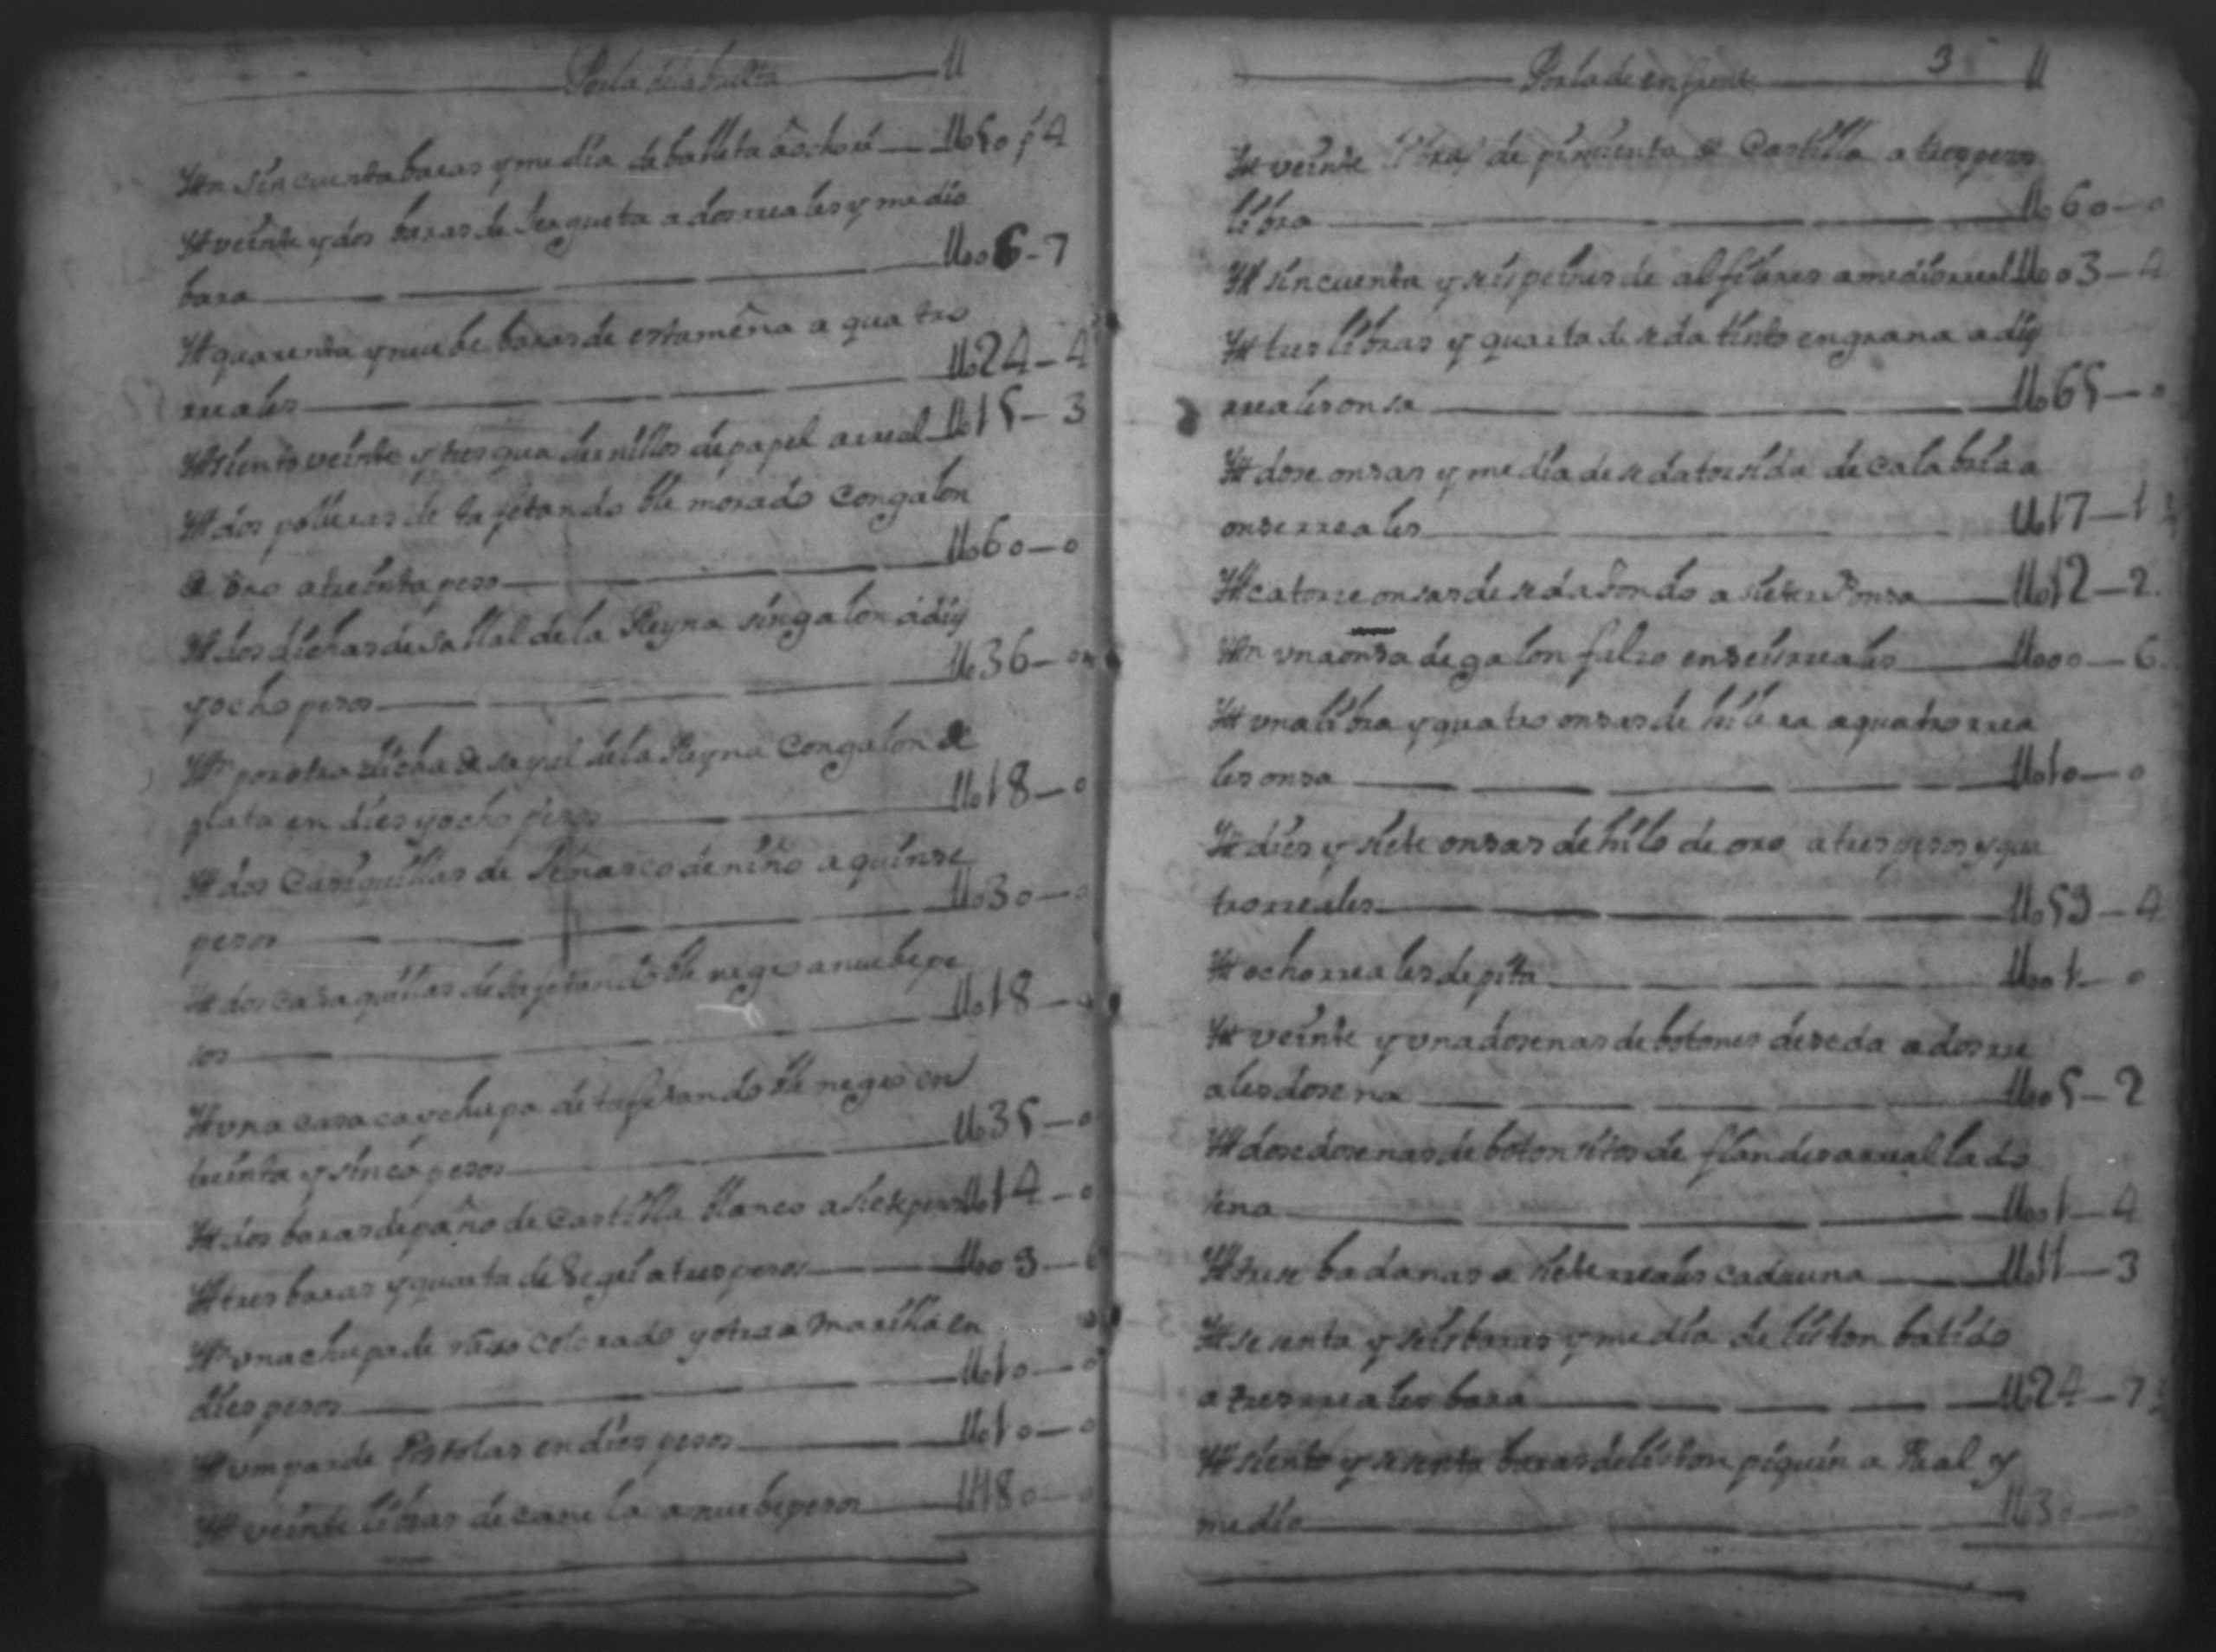 Por la de la buelta ll
Ittn sincuenta baras y media de balleta â ocho rrˢ ll050-4
Itt veinte y dos baras de Jergueta a dos rreales y medio
bara ll006-7
Itt quarenta y nuebe baras de estameña a quatro
rreales ll024-4
Itt siento veinte y tres quadernillos de papel a rreal ll015-3
Itt dos polleras de tafetan doble morado con galon
de oro a treinta pesos ll060-0
Itt dos dichas de sallal de la Reyna sin galon â diez
y ocho pesos ll036-0
Ittn por otra dicha de sayal de la Reyna Con galon de
plata en dies y ocho pesos ll018-0
Itt dos Casaquillas de de niño a quinse
pesos ll030-0
Itt dos casaquillas de tafetan doble negro a nuebe pe
sos ll018-0
Itt una casaca y chupa de tafetan doble negro en
treinta y sinco pesos ll035-0
Itt dos baras de paño de Castilla blanco a siete pesos ll014-0
Itt tres baras y quarta de a tres pesos ll009-6
Ittn una chupa de raso colorado y otra amarilla en
dies pesos ll010-0
Itt un par de Pistolas en dies pesos ll010-0
Itt veinte libras de canela a nuebe pesos ll180-0
Por la de enfrente 3 ll
Itt veinte libras de pimienta de Castilla a tres pesos
libra ll060-0
Itt sincuenta y seis de alfileres a medio rreal ll003-4
Itt tres libras y quarta de seda tinto en grana a diez
rreales onsa ll065-0
Itt dose onsas y media de seda torsida de calabria a
onse rreales ll017-1
Itt catorse onsas de seda a siete rrˢ onsa ll012-2
Ittn una onsa de galon falso en seis rreales ll000-6
Itt una libra y quatro onsas de hilera a quatro rrea
les onsa ll010-0
Itt dies y siete onsas de hilo de oro a tres pesos y qua
tro rreales ll059-4
Itt ocho rreales de pita ll001-0
Itt veinte y una dosenas de botones de seda a dos rre
ales dosena ll005-2
Itt dose dosenas de botonsitos de flandes a rreal la do
sena ll001-4
Itt trese badanas a siete rreales cada una ll011-3
Itt sesenta y seis baras y media de liston batido
a tres rreales bara ll024-7
Itt siento y sesenta baras de liston piquin a Real y
medio ll030-0